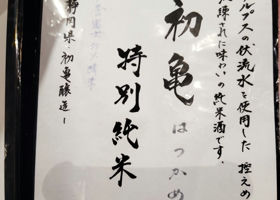 ルプスの伏流水を使用した 控えめ
洗練された味わいの純米酒です.
初亀 はつかめ
特別純米
静岡県・初亀醸造ー